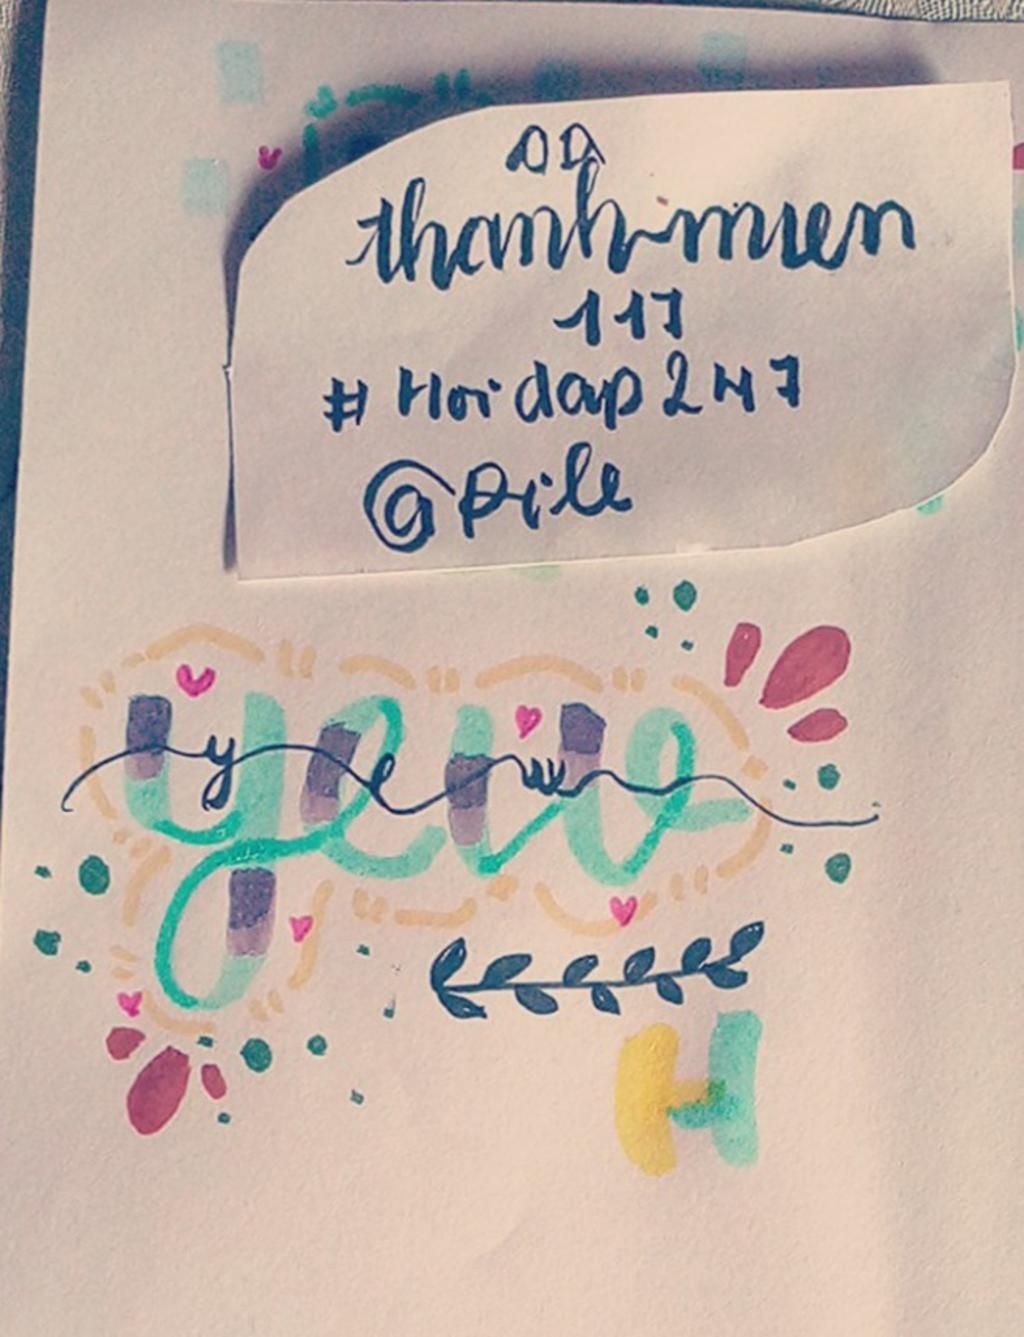 thanhmien
117
#Hoidap247
@Pile
yew
yew
H